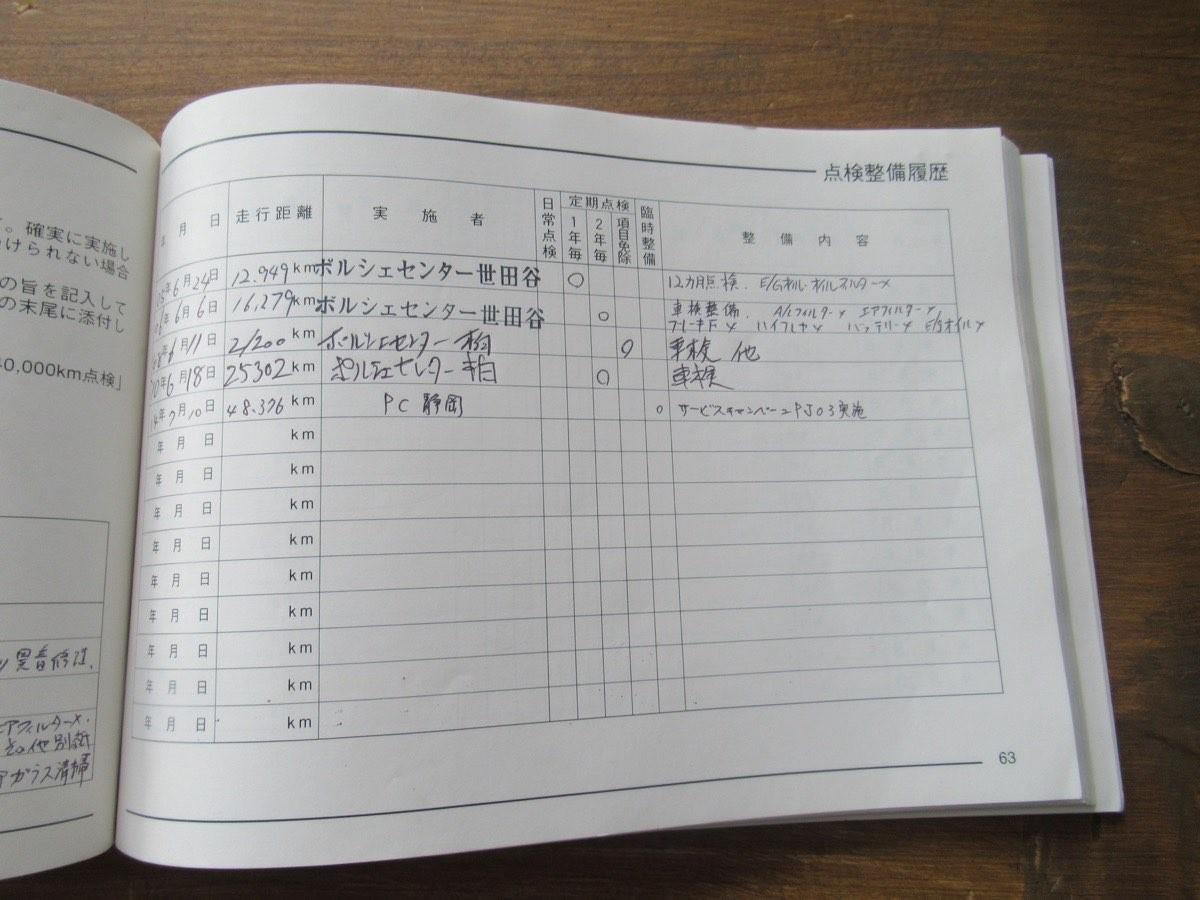 。確実に実施し
けられない場合
の旨を記入して
の末尾に添付し
40,000km点検」
異音修理.
エアフィルターメ.
その他別紙
ガラス清掃
点検整備履歴
年 月 日 走行距離 実施者 日常点検 定期点検 1年毎 2年毎 項目免除 臨時整備 整備内容
年6月24日 12.949km ポルシェセンター世田谷 ○ 12カ月点検. E/Gオイル・オイルフィルターメ
年6月6日 16.279km ポルシェセンター世田谷 ○ 車検整備. A/Cフィルターメ エアフィルターメ
ブレーキFメ バッテリーメ E/Gオイルメ
年6月11日 21200km ポルシェセンター ○ 車検 他
10年6月18日 25302km ポルシェセンター ○ 車検
14年7月10日 48.376km PC 静岡 ○ サービスキャンペーンPJ03実施
年 月 日 km
年 月 日 km
年 月 日 km
年 月 日 km
年 月 日 km
年 月 日 km
年 月 日 km
年 月 日 km
年 月 日 km
63